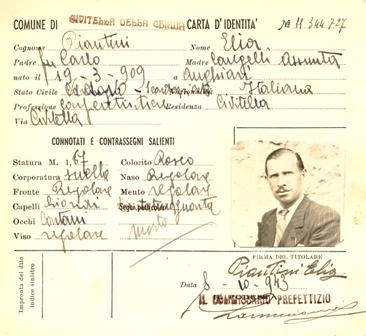 COMUNE DI CIVITELLA DELLA CHIANA CARTA D'IDENTITÀ № 11344727
Cognome Piantini Nome Elia
Padre fu Carlo Madre Assunta
nato il 19-3-909 a Anghiari
Stato Civile Nazionalità Italiana
Professione Residenza Civitella
Via Civitella
CONNOTATI E CONTRASSEGNI SALIENTI
Statura M. 1,67 Colorito Roseo
Corporatura snella Naso Regolare
Fronte Regolare Mento regolare
Capelli biondi Segni particolari
Occhi Castani
Viso regolare morto
Impronta del dito
indice sinistro
FIRMA DEL TITOLARE
Piantini Elia
Data 8-10-943
IL COMMISSARIO PREFETTIZIO